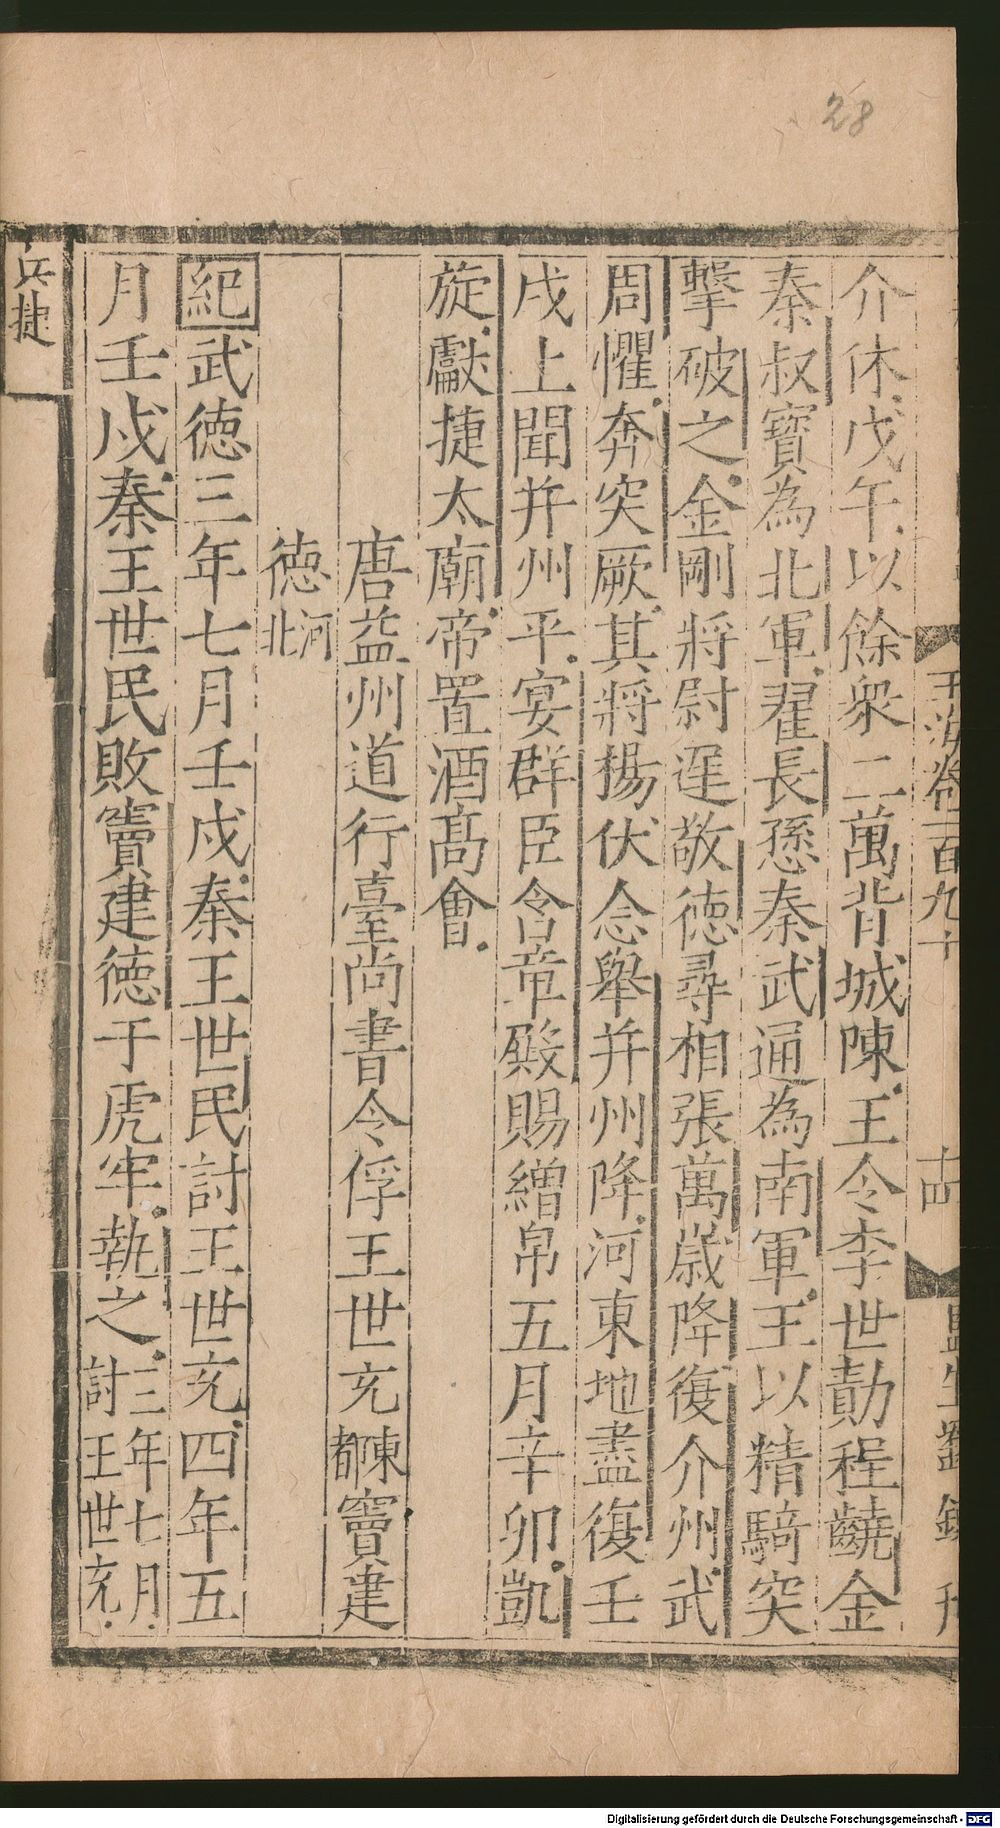 28
介休戊午以餘衆二萬背城陳王令李世勣程齩金
秦叔寳為北軍翟長愻秦武通為南軍王以精騎突
擊破之金剛將尉遟敬徳尋相張萬歳降復介州武
周懼奔突厥其將楊伏念舉并州降河東地盡復壬
戌上聞并州平宴群臣含章殿賜繒帛五月辛卯凱
旋獻捷太廟帝置酒髙會
唐益州道行臺尚書令俘王世充東都竇建
徳河北
紀武徳三年七月壬戌秦王世民討王世充四年五
月壬戌秦王世民敗竇建徳于虎牢執之三年七月
討王世充
兵捷
玉海卷一百九十
十四
Digitalisierung gefördert durch die Deutsche Forschungsgemeinschaft - DFG